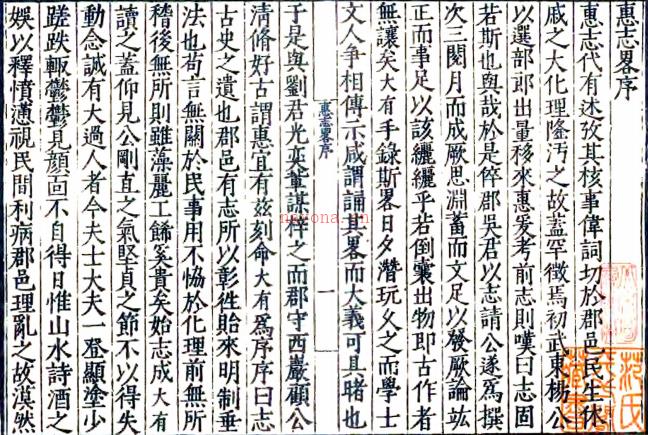 惠志畧序
惠志代有述攷其核事偉詞切於郡邑民生休
戚之大化理隆汚之故蓋罕徴焉初武東楊公
以選部郎出量移來惠爰考前志則嘆曰志固
若斯也與哉於是倅郡吳君以志請公遂爲撰
次三閱月而成厥思淵蓄而文足以發厥論竑
正而事足以該纚纚乎若倒囊出物即古作者
無讓矣大有手錄斯畧日夕潛玩久之而學士
文人争相傳示咸謂誦其畧而大義可具睹也
惠志畧序
一
于是與劉君光奕輩謀梓之而郡守西巖顧公
清脩好古謂惠宜有兹刻命大有爲序序曰志
古史之遺也郡邑有志所以彰徃貽來明制垂
法也茍言無關於民事用不恊於化理前無所
稽後無所則雖藻麗工餙奚貴矣始志成大有
讀之蓋仰見公剛直之氣堅貞之節不以得失
動念誠有大過人者今夫士大夫一登顯塗少
蹉跌輙鬱鬱見顔面不自得日惟山水詩酒之
娛以釋憤懣視民間利病郡邑理亂之故漠然
nayona.cn